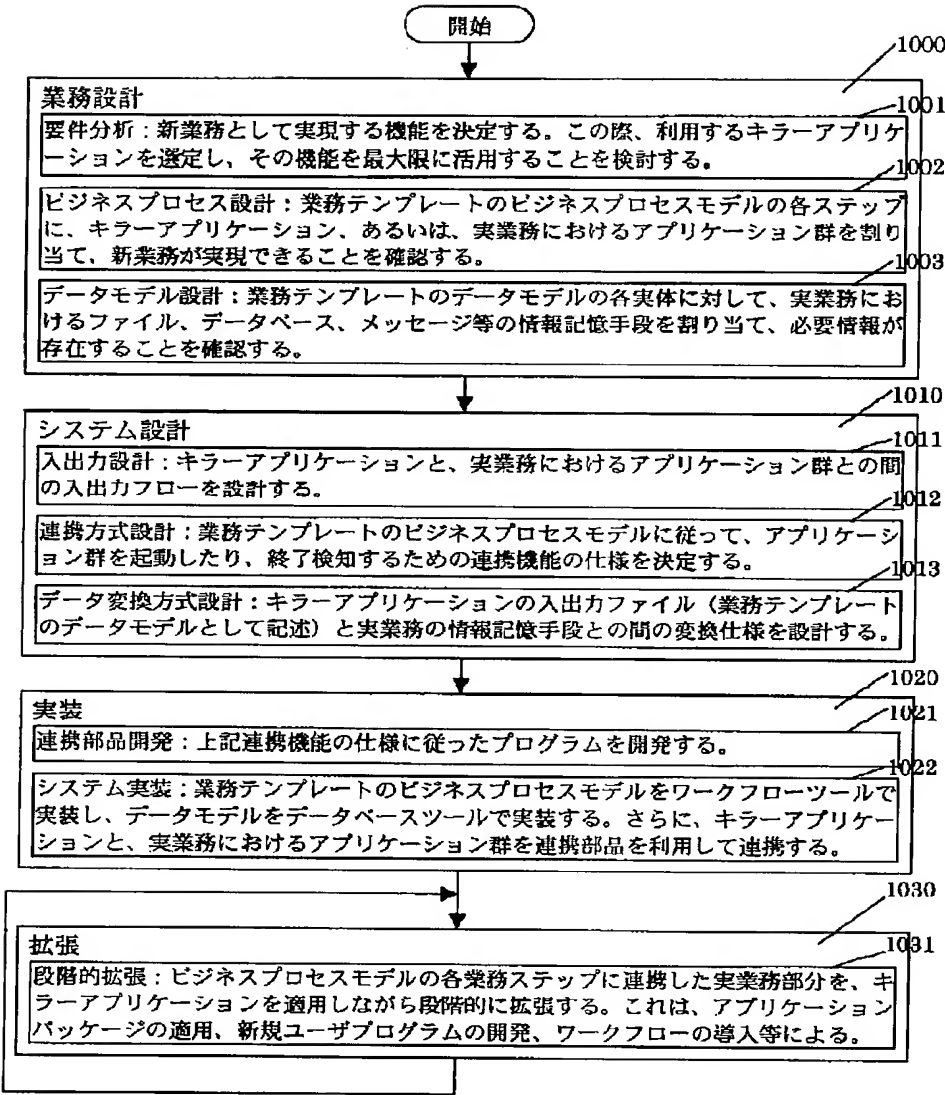 開始
1000
業務設計
1001
要件分析：新業務として実現する機能を決定する。この際、利用するキラーアプリケ
ーションを選定し、その機能を最大限に活用することを検討する。
1002
ビジネスプロセス設計：業務テンプレートのビジネスプロセスモデルの各ステップ
に、キラーアプリケーション、あるいは、実業務におけるアプリケーション群を割り
当て、新業務が実現できることを確認する。
1003
データモデル設計：業務テンプレートのデータモデルの各実体に対して、実業務にお
けるファイル、データベース、メッセージ等の情報記憶手段を割り当て、必要情報が
存在することを確認する。
1010
システム設計
1011
入出力設計：キラーアプリケーションと、実業務におけるアプリケーション群との間
の入出力フローを設計する。
1012
連携方式設計：業務テンプレートのビジネスプロセスモデルに従って、アプリケーシ
ョン群を起動したり、終了検知するための連携機能の仕様を決定する。
1013
データ変換方式設計：キラーアプリケーションの入出力ファイル（業務テンプレート
のデータモデルとして記述）と実業務の情報記憶手段との間の変換仕様を設計する。
1020
実装
1021
連携部品開発：上記連携機能の仕様に従ったプログラムを開発する。
1022
システム実装：業務テンプレートのビジネスプロセスモデルをワークフローツールで
実装し、データモデルをデータベースツールで実装する。さらに、キラーアプリケー
ションと、実業務におけるアプリケーション群を連携部品を利用して連携する。
1030
拡張
1031
段階的拡張：ビジネスプロセスモデルの各業務ステップに連携した実業務部分を、キ
ラーアプリケーションを適用しながら段階的に拡張する。これは、アプリケーション
パッケージの適用、新規ユーザプログラムの開発、ワークフローの導入等による。